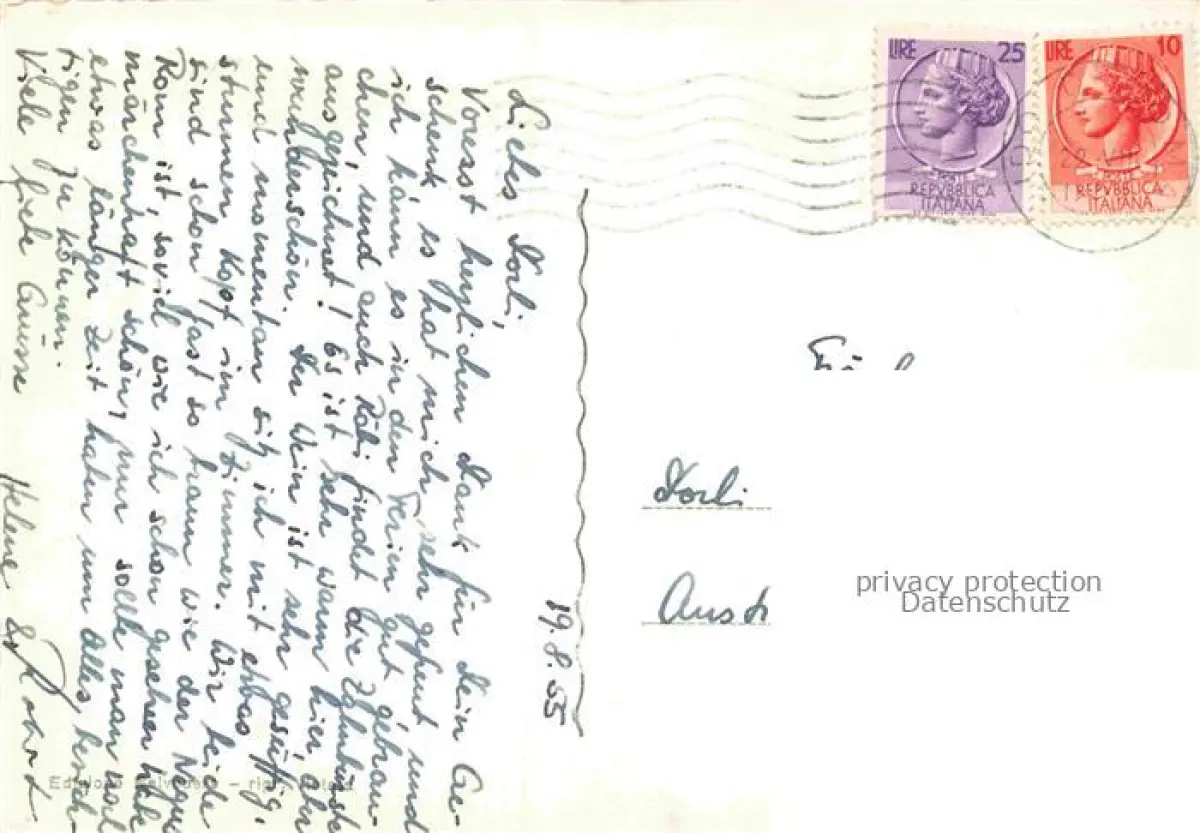 19.8.55
Liebes Dorli,
Vorerst herzlichen Dank für Dein Ge-
schenk es hat mich sehr gefreut, und
ich kann es in den Ferien gut gebrau-
chen, und auch Röbi findet die Zahnbürste
ausgezeichnet! Es ist sehr warm hier, aber
wunderschön. Der Wein ist sehr gesüffig,
und momentan sitz ich mit etwas
sturmen Kopf im Zimmer. Wir beide
sind schon fast so braun wie der Negus
Rom ist, soviel wie ich schon gesehen habe
märchenhaft schön, nur sollte man noch
etwas länger Zeit haben um Alles, besich-
tigen zu können.
Viele liebe Grüsse
Helene & Robert
Edizione Belvedere
LIRE 25
REPVBBLICA
ITALIANA
LIRE 10
REPVBBLICA
ITALIANA
Dorli
privacy protection
Datenschutz